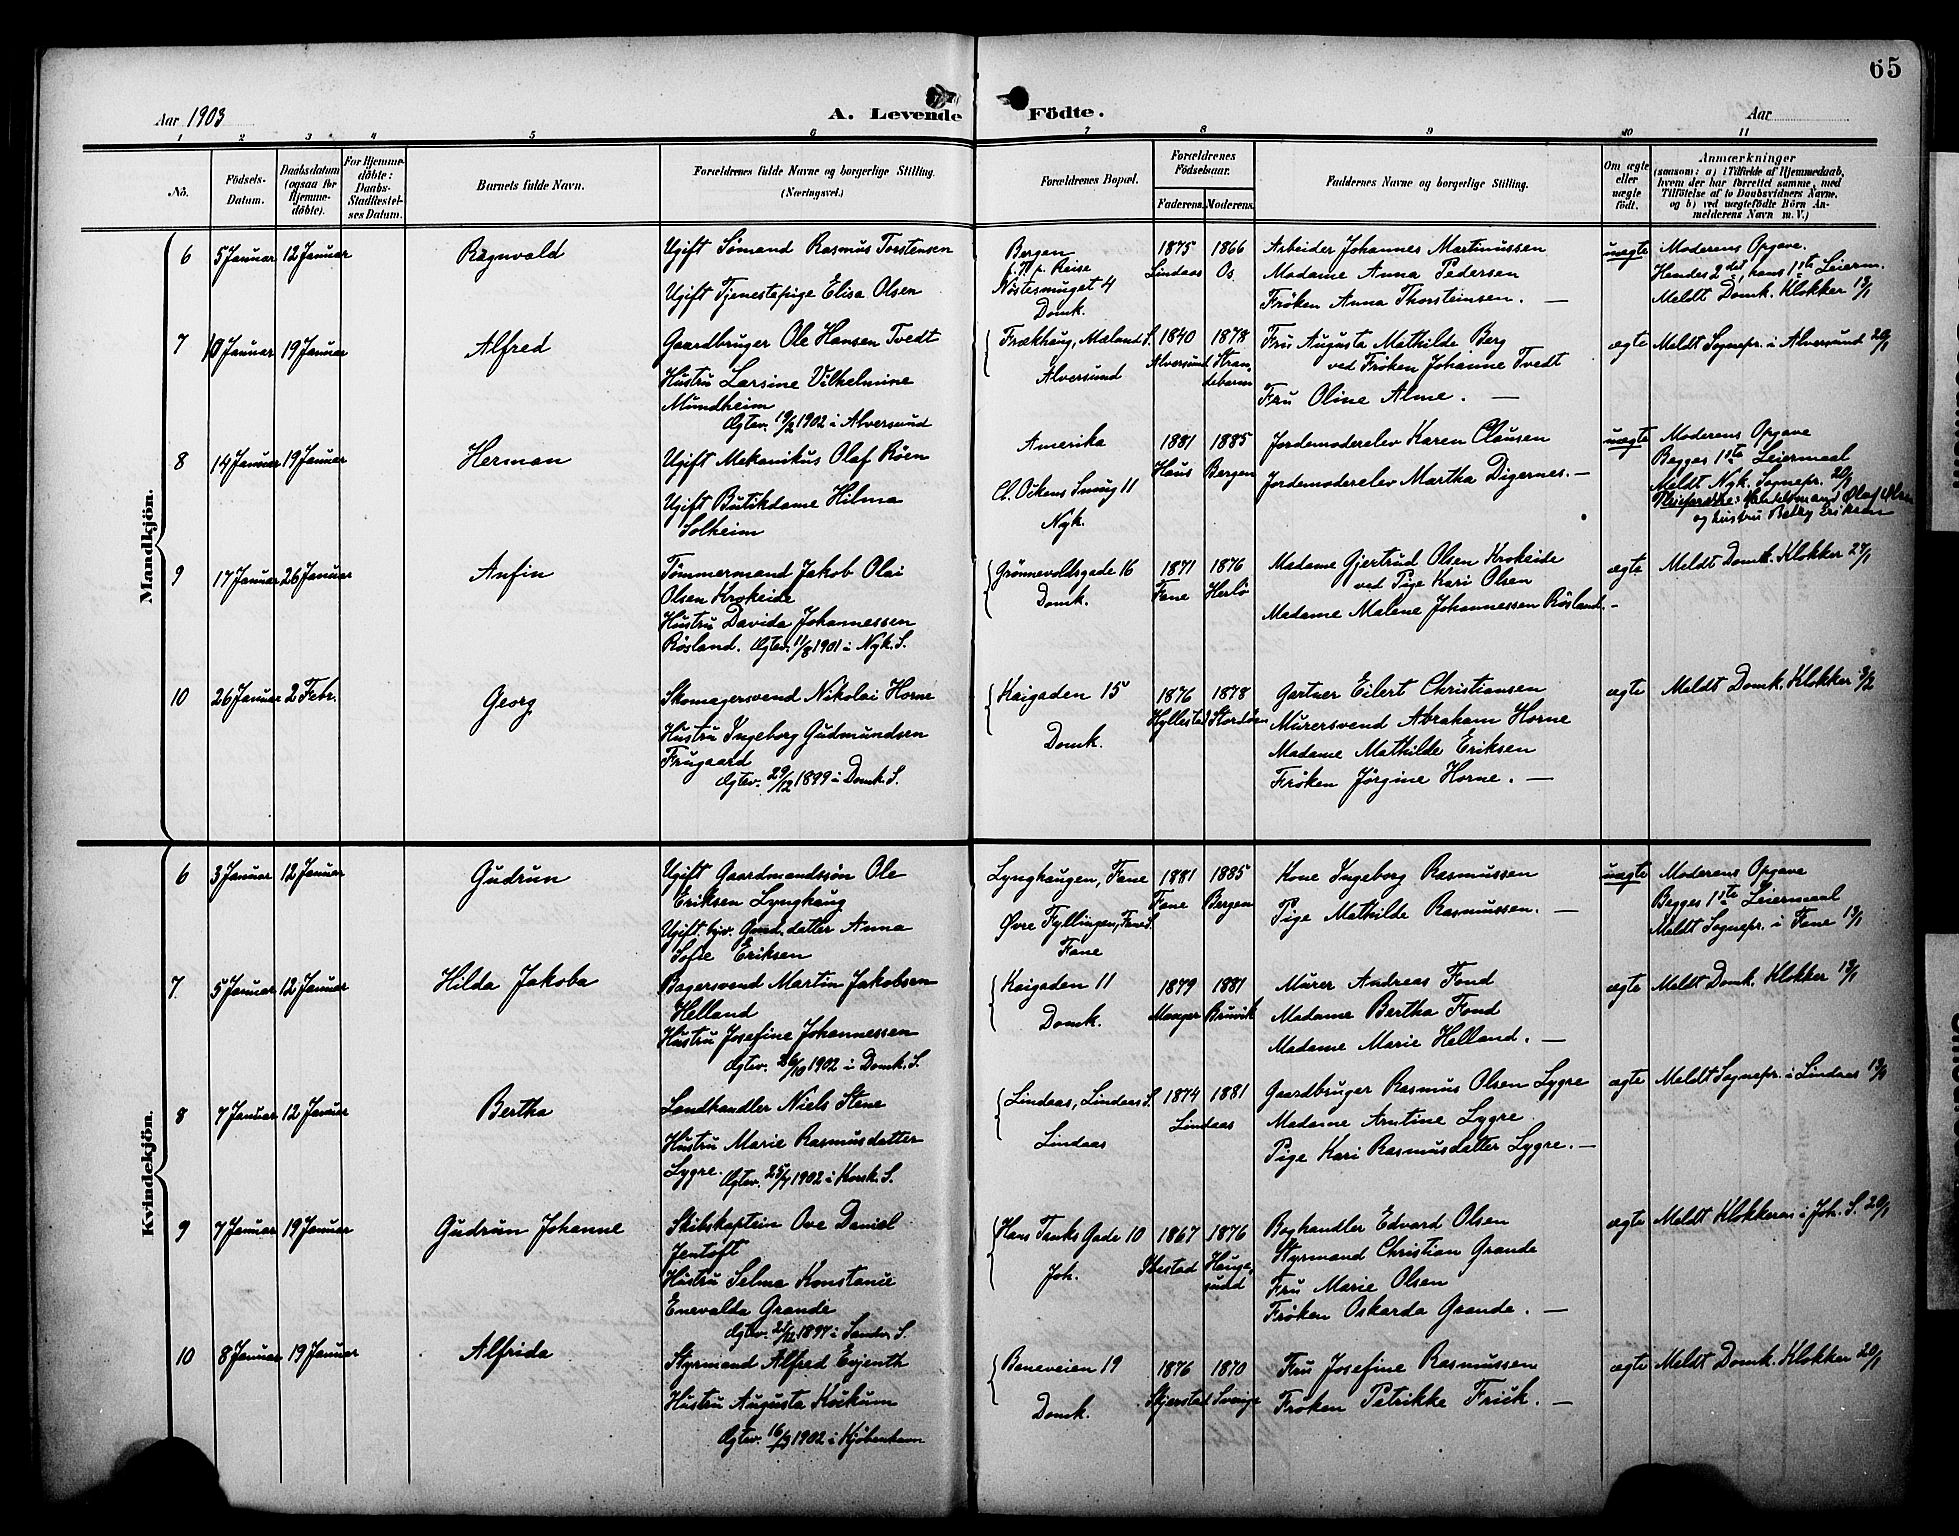 65
Aar 1903 A. Levende Födte. Aar
1 2 3 4 5 6 7 8 9 10 11
No. Födsels-Datum. Daabsdatum (ogsaa for hjemmedöbte). For Hjemmedöbte: Daabs-Stadfæstelses Datum. Barnets fulde Navn. Forældrenes fulde Navne og borgerlige Stilling. (Næringsvei.) Forældrenes Bopæl. Forældrenes Födselsaar. Faderens. Moderens. Faddernes Navne og borgerlige Stilling. Om ægte eller uægte födt. Anmærkninger (saasom: a) i Tilfælde af Hjemmedaab, hvem der har forrettet samme, med Tilföielse af to Daabsvidners Navne, og b) ved uægtefödte Börn Anmelderens Navn m. V.)
Mandkjön.
6 5 Januar 12 Januar Ragnvald
Ugift Sømand Rasmus Torstensen
Ugift Tjenestepige Elisa Olsen
Bergen
p. T. p. Reise
Nøstesmuget 4
Domk.
1875 1866
Lindaas Os
Arbeider Johannes Martinussen
Madame Anna Pedersen
Frøken Anna Thorsteinsen. —
uægte
Moderens Opgave.
Hendes 2det, hans 1ste Leierm.
Meldt Domk. Klokker 13/1
7 10 Januar 19 Januar Alfred
Gaardbruger Ole Hansen Tvedt
Hustru Larsine Vilhelmine
Mundheim
Ægtev. 19/2 1902 i Alversund
Frækhaug, Meland S.
Alversund
1840 1878
Alversund Strandebarm
Fru Augusta Mathilde Berg
ved Frøken Johanne Tvedt
Fru Oline Alme. —
ægte Meldt Sognepr. i Alversund 20/1
8 14 Januar 19 Januar Herman
Ugift Mekanikus Olaf Røen
Ugift Butikdame Hilma
Solheim
Amerika
Cl. Ockens Smug 11
Nyk.
1881 1885
Haus Bergen
Jordemoderelev Karen Clausen
Jordemoderelev Martha Digernes. —
uægte
Moderens Opgave
Begges 1ste Leiermaal
Meldt Nyk. Sognepr. 20/1
og hustru Betzy Eriksen
9 17 Januar 26 Januar Anfin
Tømmermand Jakob Olai
Olsen Krokeide
Hustru Davida Johannessen
Røsland. Ægtev. 11/8 1901 i Nyk. S.
Grønnevoldsgade 16
Domk.
1871 1876
Fane Herlø
Madame Gjertrud Olsen Krokeide
ved Pige Kari Olsen
Madame Malene Johannessen Røsland. -
ægte Meldt Domk. Klokker 27/1
10 26 Januar 2 Febr. Georg
Skomagersvend Nikolai Horne
Hustru Ingeborg Gudmundsen
Frugaard
Ægtev. 29/12 1899 i Domk. S.
Kaigaden 15
Domk.
1876 1878
Hyllestad Stordøen
Gartner Eilert Christiansen
Murersvend Abraham Horne
Madame Mathilde Eriksen
Frøken Jørgine Horne. —
ægte Meldt Domk. Klokker 3/2
Kvindekjön.
6 3 Januar 12 Januar Gudrun
Ugift Gaardmandssøn Ole
Eriksen Lynghaug
Ugift datter Anna
Sofie Eriksen
Lynghaugen, Fane
Øvre Fyllingen, Fane S.
Fane
1881 1885
Fane Bergen
Kone Ingeborg Rasmussen
Pige Mathilde Rasmussen. —
uægte
Moderens Opgave
Begges 1ste Leiermaal
Meldt Sognepr. i Fane 13/1
7 5 Januar 12 Januar Hilda Jakoba
Bagersvend Martin Jakobsen
Helland
Hustru Josefine Johannessen
Ægtev. 26/10 1902 i Domk. S.
Kaigaden 11
Domk.
1879 1881
Manger Bruvik
Murer Andreas Fond
Madame Bertha Fond
Madame Marie Helland. —
ægte Meldt Domk. Klokker 13/1
8 7 Januar 12 Januar Bertha
Landhandler Niels Stene
Hustru Marie Rasmusdatter
Lygre. Ægtev. 25/4 1902 i Korsk. S.
Lindaas, Lindaas S.
Lindaas
1874 1881
Lindaas
Gaardbruger Rasmus Olsen Lygre
Madame Arntine Lygre
Pige Kari Rasmusdatter Lygre. —
ægte Meldt Sognepr. i Lindaas 13/1
9 7 Januar 19 Januar Gudrun Johanne
Skibskaptein Ove Daniel
Jentoft
Hustru Selma Konstanse
Enevalda Grande
1897 i Sandv. S.
Hans Tanks Gade 10
Joh.
1867 1876
Ibestad Haugesund
Boghandler Edvard Olsen
Styrmand Christian Grande
Fru Marie Olsen
Frøken Oskarda Grande. —
ægte Meldt Klokkeren i Joh. S. 20/1
10 8 Januar 19 Januar Alfrida
Styrmand Alfred Evjenth
Hustru Augusta Kockum
Ægtev. 16/9 1902 i Kjøbenhavn
Baneveien 19
Domk.
1876 1870
Skjerstad Sverige
Fru Josefine Rasmussen
Frøken Petrikke Frick. —
ægte Meldt Domk. Klokker 20/1